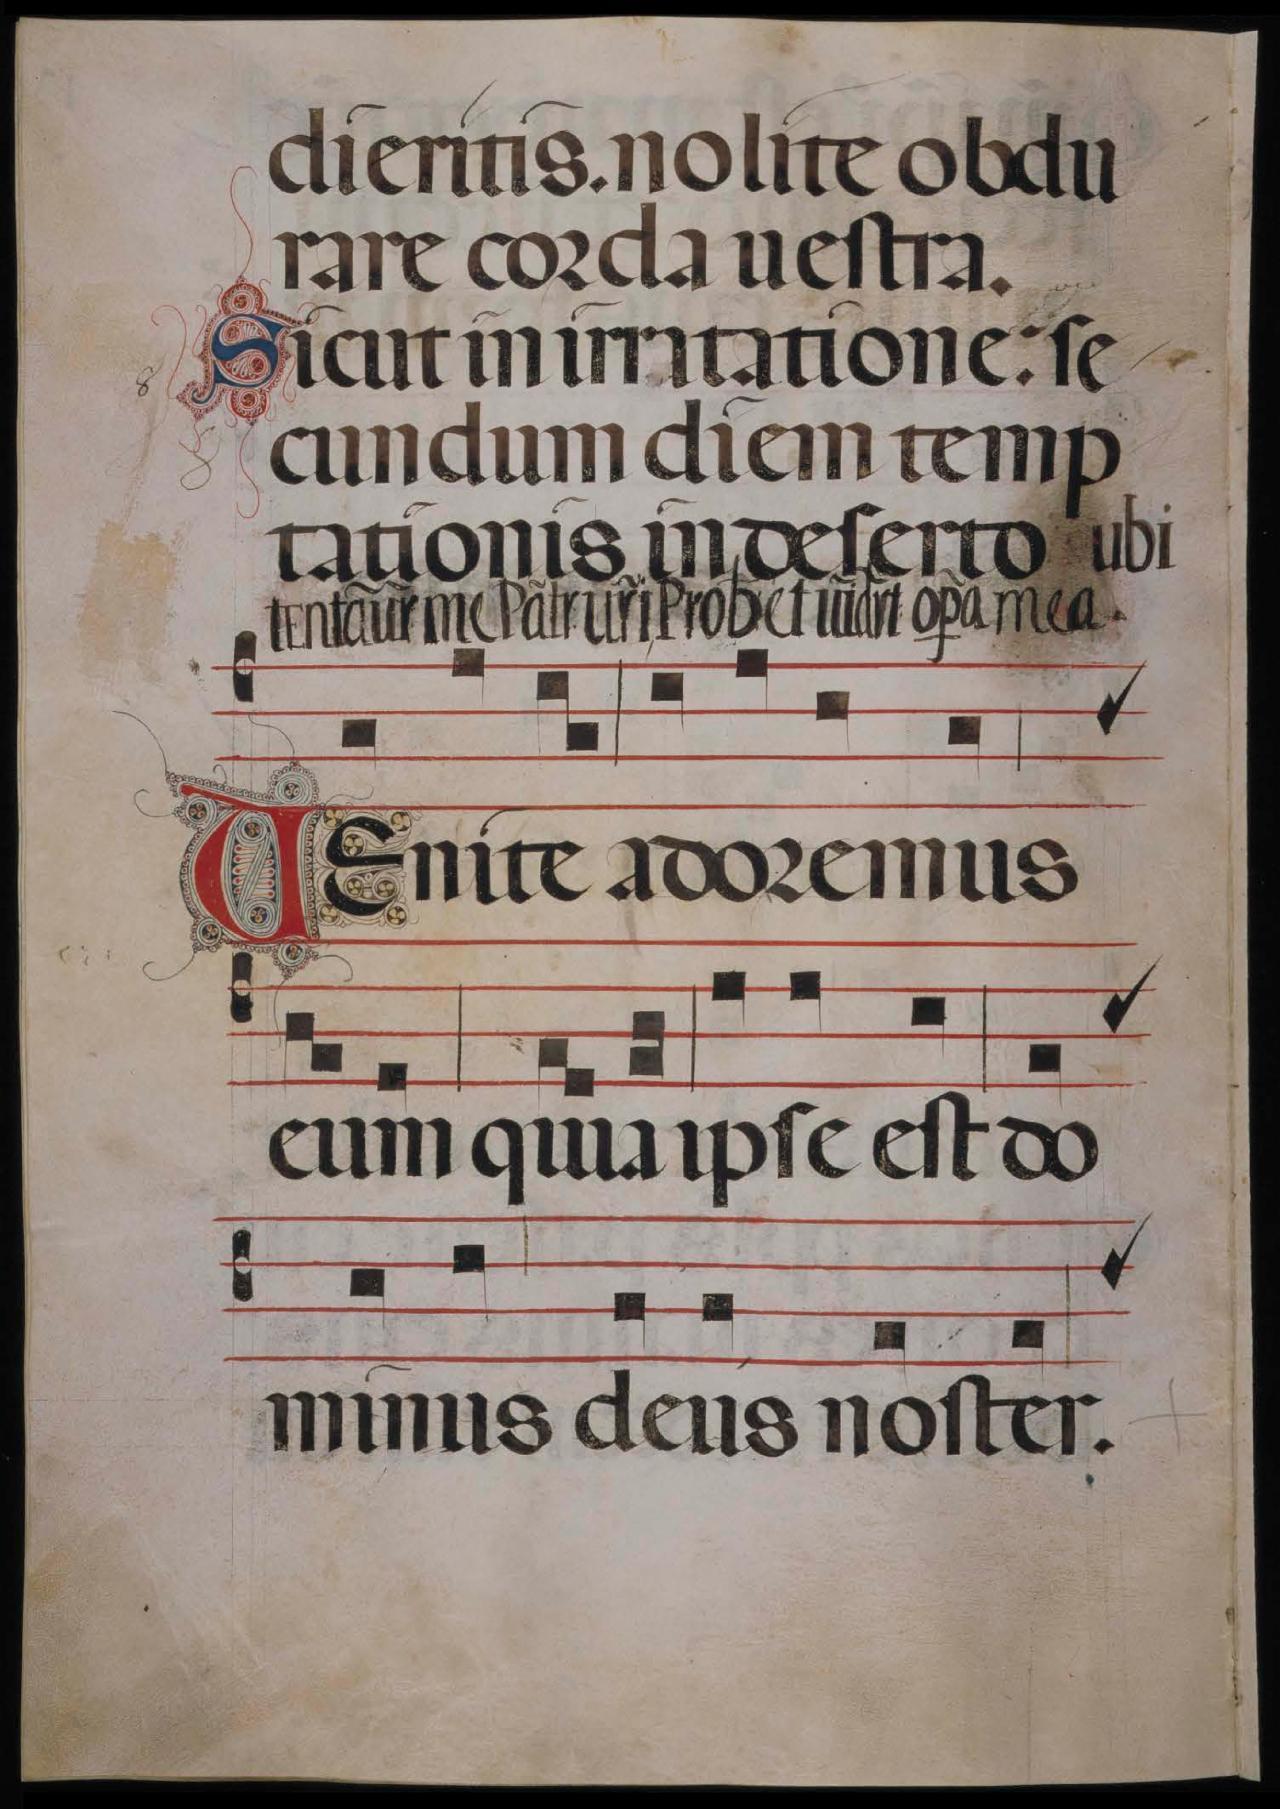 dieritis. nolite obdu
rare corda uestra.
Sicut in irritatione: se
cundum diem temp
tationis in deserto ubi
tentaūr me Pātr ūri Prob̄ et uid̄rt op̄a mea.
VEnite adoremus
eum quia ipse est do
minus deus noster.